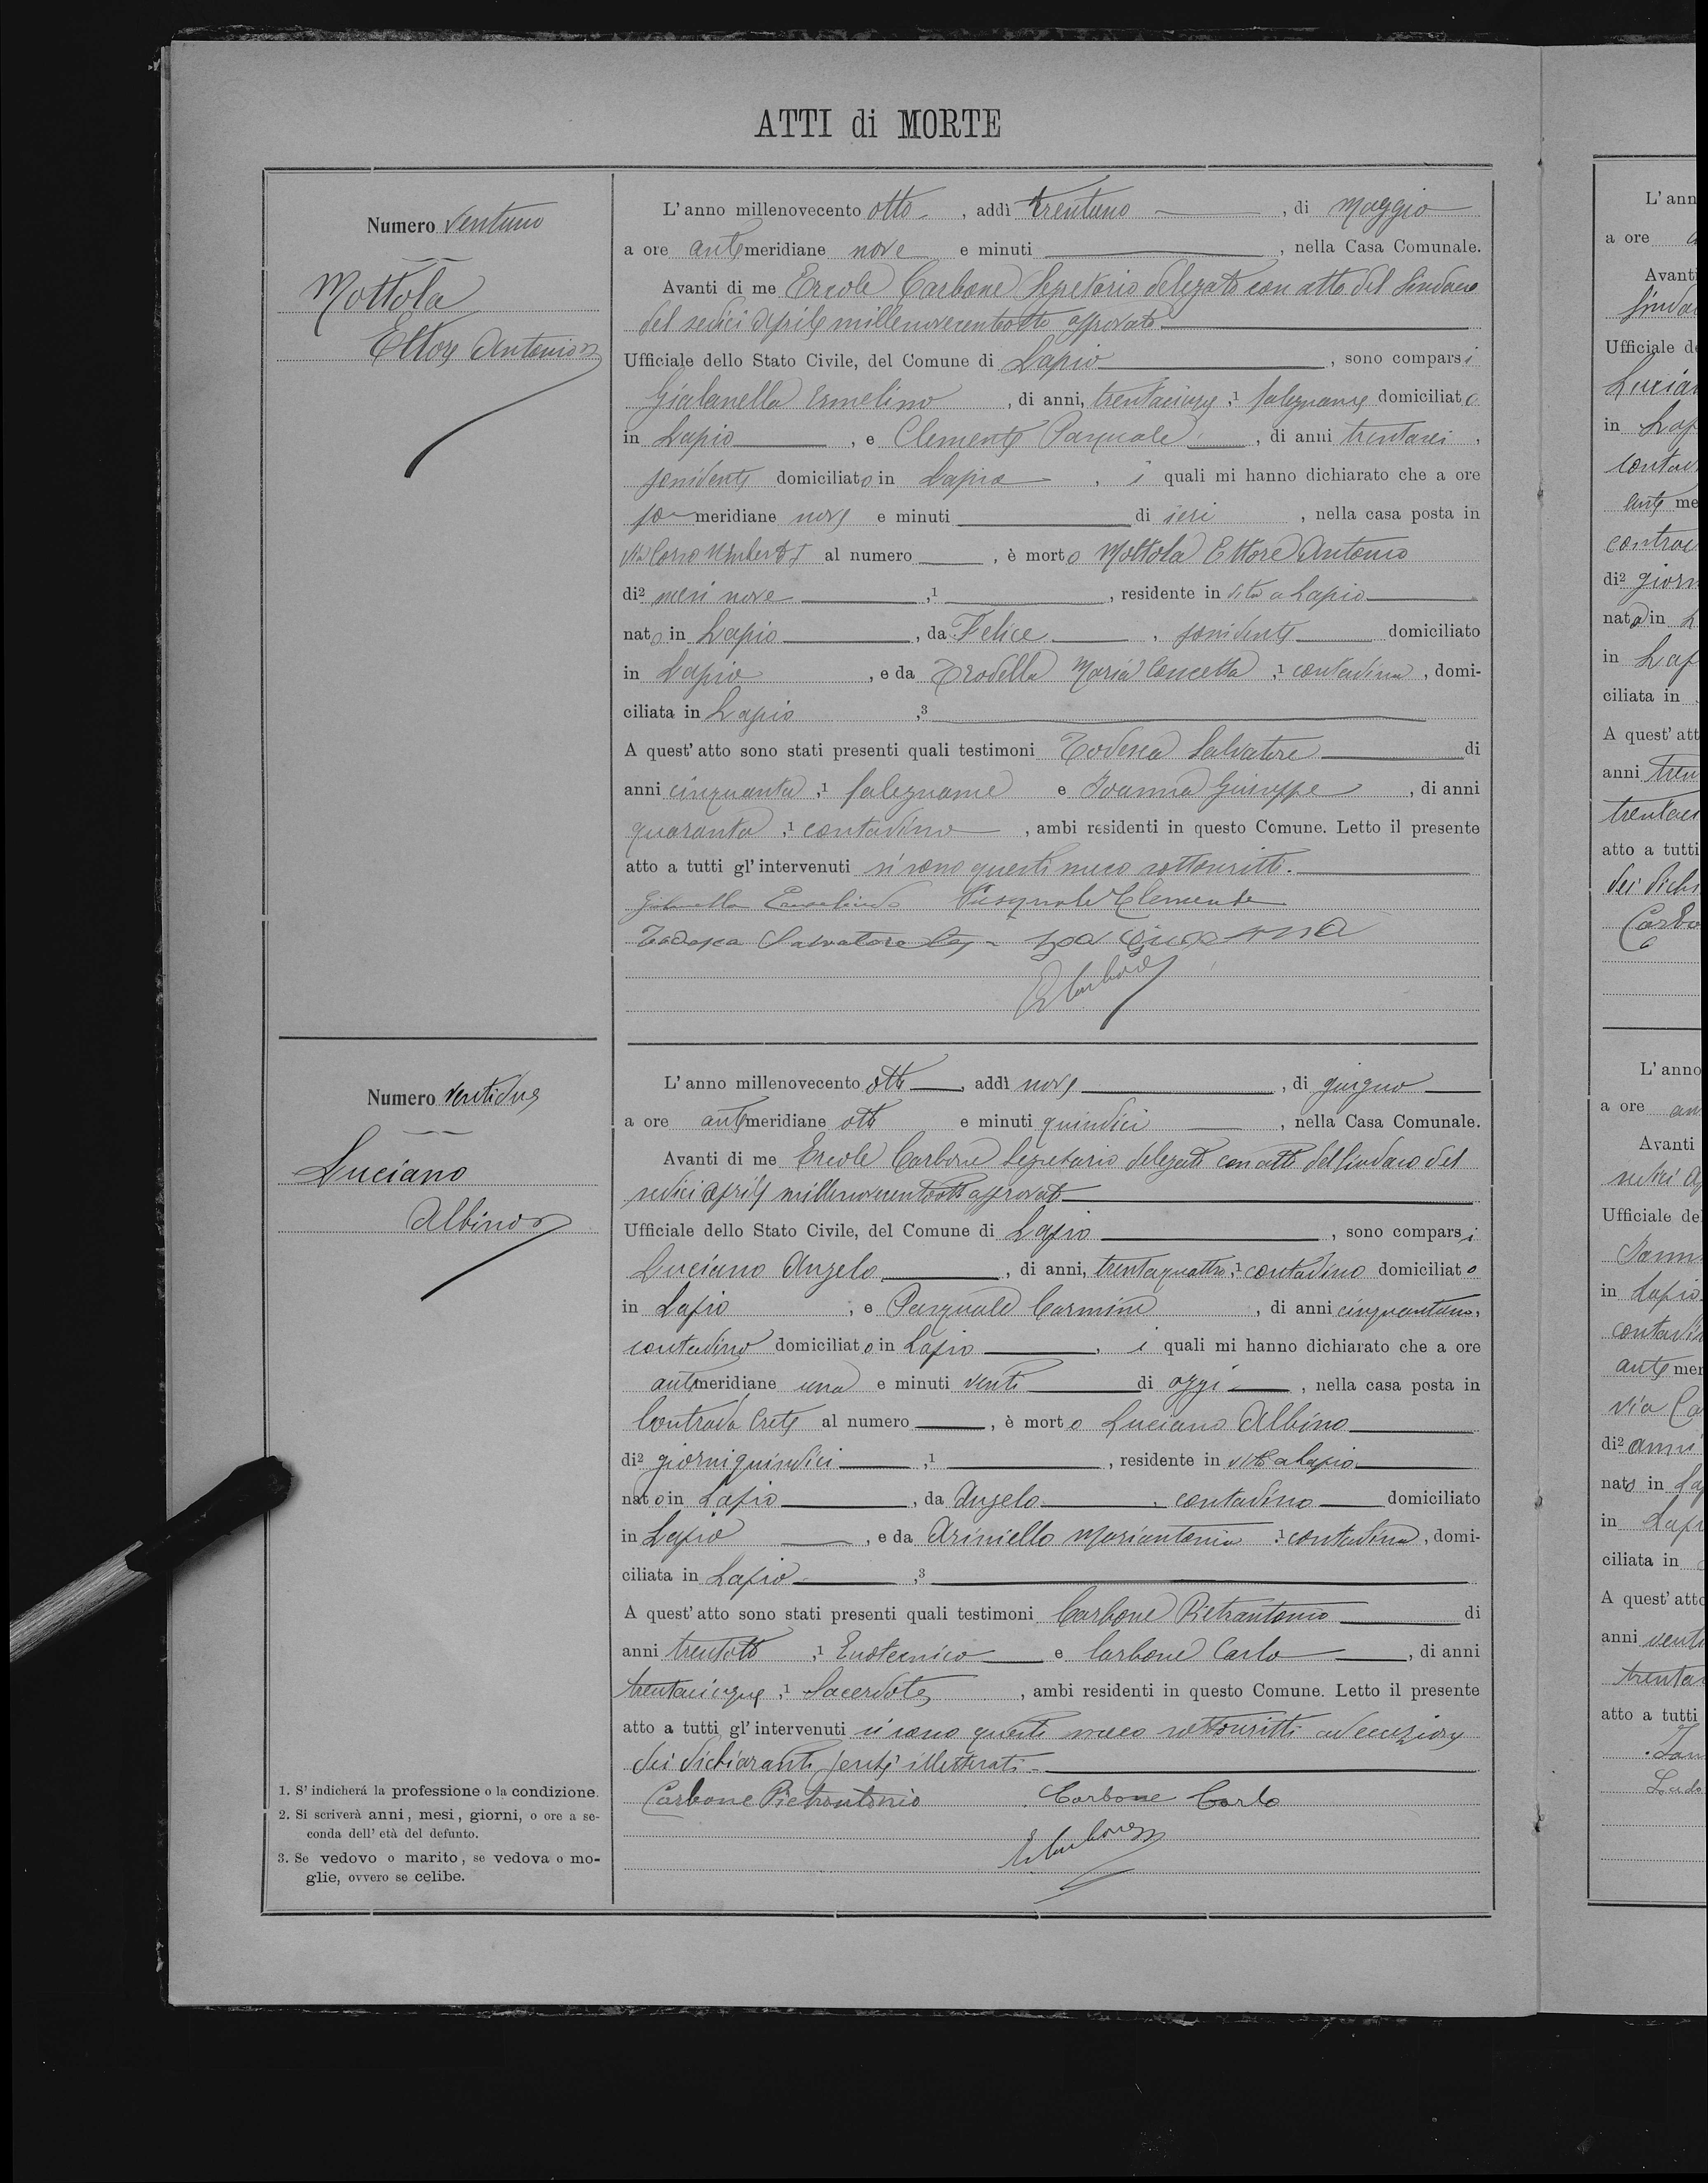 ATTI di MORTE
Numero ventuno
Mottola
Ettore Antonio
L'anno millenovecento otto, addì trentuno, di Maggio
a ore antemeridiane nove e minuti , nella Casa Comunale.
Avanti di me Ercole Carbone Segretario delegato con atto del Sindaco
del sedici Aprile millenovecentootto approvato
Ufficiale dello Stato Civile, del Comune di Lapio, sono comparsi
Gialanella Ermelino, di anni, trentacinque,1 falegname domiciliato
in Lapio, e Clemente Pasquale, di anni trentasei,
possidente domiciliato in Lapio, i quali mi hanno dichiarato che a ore
pomeridiane nove e minuti di ieri, nella casa posta in
via Corso Umberto I al numero , è morto Mottola Ettore Antonio
di2 mesi nove ,1 , residente in vita a Lapio
nato in Lapio, da Felice, possidente domiciliato
in Lapio, e da Trodella Maria Concetta,1 contadina, domi-
ciliata in Lapio ,3
A quest'atto sono stati presenti quali testimoni Todesca Salvatore di
anni cinquanta,1 falegname e Ioanna Giuseppe, di anni
quaranta,1 contadino, ambi residenti in questo Comune. Letto il presente
atto a tutti gl'intervenuti si sono questi meco sottoscritti.
Gialanella Ermelindo Pasquale Clemente
Todesca Salvatore
E Carbone
Numero ventidue
Luciano
Albino
L'anno millenovecento otto, addì nove, di giugno
a ore antemeridiane otto e minuti quindici, nella Casa Comunale.
Avanti di me Ercole Carbone Segretario delegato con atto del Sindaco del
sedici Aprile millenovecentootto approvato
Ufficiale dello Stato Civile, del Comune di Lapio, sono comparsi
Luciano Angelo, di anni, trentaquattro,1 contadino domiciliato
in Lapio, e Pasquale Carmine, di anni cinquantuno,
contadino domiciliato in Lapio, i quali mi hanno dichiarato che a ore
antemeridiane una e minuti venti di oggi, nella casa posta in
Contrada Crete al numero , è morto Luciano Albino
di2 giorni quindici ,1 , residente in vita a Lapio
nato in Lapio, da Angelo, contadino domiciliato
in Lapio, e da Ariniello Mariantonia,1 contadina, domi-
ciliata in Lapio ,3
A quest'atto sono stati presenti quali testimoni Carbone Pietrantonio di
anni trentotto,1 Enotecnico e Carbone Carlo, di anni
trentacinque,1 Sacerdote, ambi residenti in questo Comune. Letto il presente
atto a tutti gl'intervenuti si sono questi meco sottoscritti ad eccezione
dei dichiaranti perché illetterati
Carbone Pietrantonio Carbone Carlo
E Carbone
1. S' indicherá la professione o la condizione.
2. Si scriverà anni, mesi, giorni, o ore a se-
conda dell' età del defunto.
3. Se vedovo o marito, se vedova o mo-
glie, ovvero se celibe.